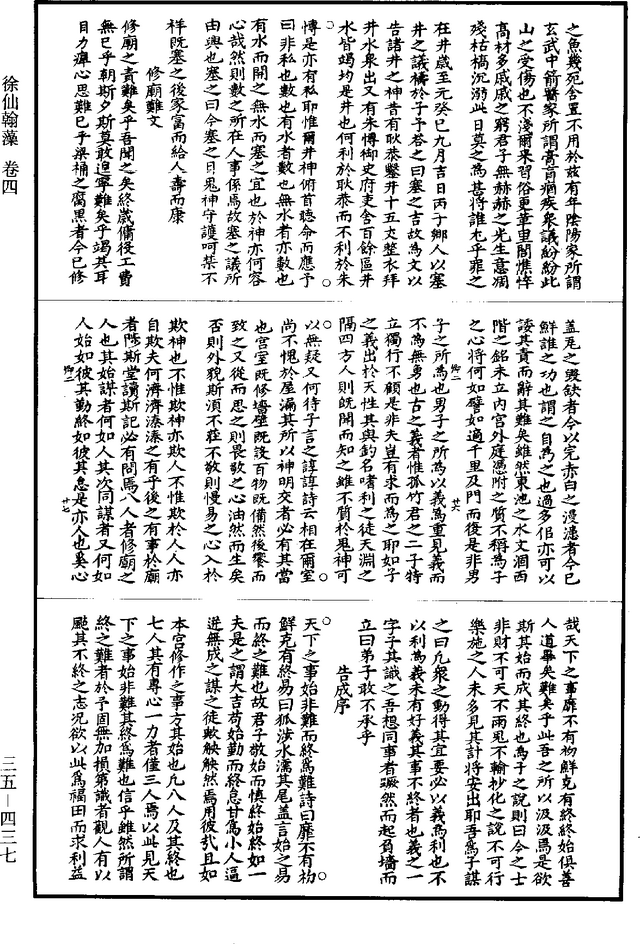 徐仙翰藻 卷四
三五—四三七
之魚幾宛舍置不用於兹有年陰陽家所謂
玄武中箭醫家所謂膏肓痼疾衆議紛紛此
山之受傷也不淺爾來習俗更革里閭憔悴
高材多戚戚之窮君子無赫赫之光生意凋
殘枯槁沉溺此日莫之爲甚將誰尤乎罪之
在井歲至元癸巳九月吉日丙子鄉人以塞
井之議禱於子予荅之曰塞之吉故爲文以
告諸井之神昔有耿恭鑿井十五丈整衣拜
井水泉出又有朱博御史府吏舍百餘區井
水皆竭均是井也何利於耿恭而不利於朱
博是亦有私耶惟爾井神俯首聽命而應予
曰非私也數也有水者數也無水者亦數也
有水而開之無水而塞之宜也於神亦何容
心哉然則數之所在人事係焉故塞之議所
由興也塞之曰令塞之日鬼神守護呵禁不
祥既塞之後家富而給人壽而康
修廟難文
修廟之責難矣乎吾聞之矣終歲傭役工費
無已乎朝斯夕斯莫敢遑寧難矣乎竭其耳
目力癉心思難已乎梁桷之腐黑者今已修
蓋瓦之毁缺者今以完赤白之漫漶者今已
鮮誰之功也謂之自爲之也過多佀亦可以
諉其責而辭其難矣雖然東池之水文涸西
階之銘未立内宫外庭憑附之質不稱爲子
之心將何如譬如過千里及門而復是非男
子之所爲也男子之所爲以義爲重見義而
不爲無勇也古之義者惟孤竹君之二子特
立獨行不顧是非夫豈有求而爲之耶如子
之義出於天性其與釣名嗜利之徒天淵之
隔四方人則既聞而知之雖不質於鬼神可
以無疑又何待子言之諄諄詩云相在爾室
尚不愧於屋漏其所以神明交者必有其當
也宫室既修墻壁既設百物既備然後饗而
致之又從而思之則畏敬之心油然而生矣
否則外貌斯須不莊不敬則慢易之心入於
欺神也不惟欺神亦欺人不惟欺於人人亦
自欺夫何濟濟溱溱之有乎後之有事於廟
者陟斯堂讀斯記必有問焉八人者修廟之
人也其始謀者何如人其次同謀者又何如
人始如彼其勤終如彼其怠是亦人也奚心
哉天下之事靡不有初鮮克有終終始俱善
人道畢矣難矣乎此吾之所以汲汲焉是欲
斯其始而成其終也爲子之說則曰今之士
非財不可天不雨鬼不輸抄化之說不可行
樂施之人未多見其計將安出耶吾爲子謀
之曰凡衆之動得其宜要必以義爲利也不
以利爲義未有好義其事不終者也義之一
字子其識之吾想同事者蹶然而起負墻而
立曰弟子敢不承乎
告成序
天下之事始非難而終爲難詩曰靡不有初
鮮克有終易曰狐涉水濡其尾盖言始之易
而終之難也故君子敬始而慎終始終如一
夫是之謂大吉苟始勤而終怠甘爲小人逼
迸無成之謀之徒歟觖觖然焉用彼哉且如
本宫修作之事方其始也凡八人及其終也
七人其有專心一力者僅三人焉以此見天
下之事始非難其終爲難也信乎雖然所謂
終之難者於予固無加損第識者觀人有以
颩其不終之志況欲以此爲福田而求利益